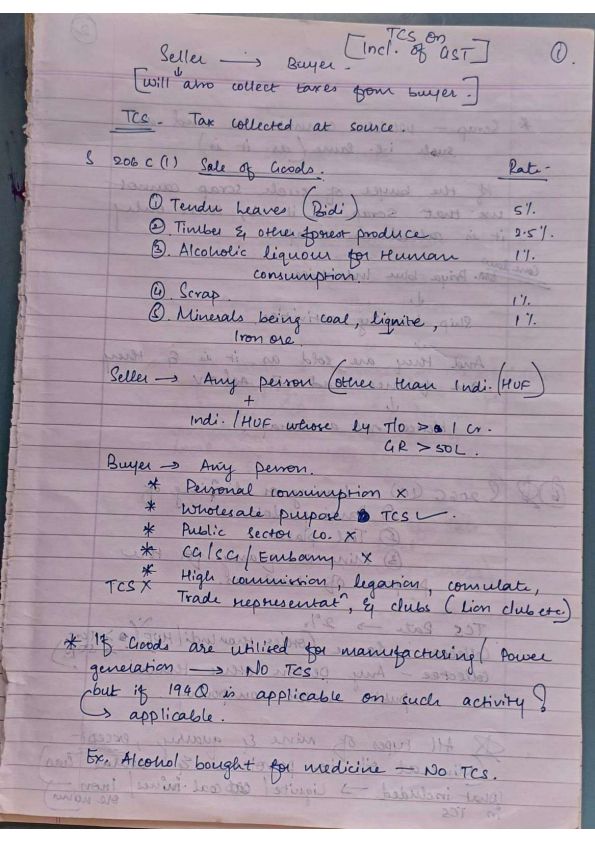 TCS on ①.
Seller → Buyer. [Incl. of GST]
[Will also collect taxes from buyer.]
TCS. Tax collected at source.
S 206 C (1) Sale of Goods. Rate-
① Tendu Leaves (Bidi) 5%.
② Timber & other forest produce 2.5%.
③ Alcoholic liquour for Human 1%.
consumption.
④ Scrap. 1%.
⑤ Minerals being coal, lignite, 1%.
Iron ore.
Seller → Any person (other than Indi./HUF)
+
Indi./HUF whose ly T/O > 1 Cr.
GR > 50L.
Buyer → Any person.
* Personal consumption ×
* Wholesale purpose TCS ✓.
* Public Sector Co. ×
* CG/SG/Embassy ×
* High commission, legation, consulate,
TCS × Trade representatn, & clubs (lion club etc.)
* If Goods are utilised for manufacturing/Power
generation → No TCS.
but if 194Q is applicable on such activity?
↳ applicable.
Ex. Alcohol bought for medicine – No TCS.